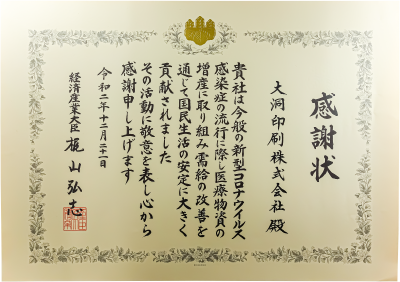 感謝状
大洞印刷株式会社殿
貴社は今般の新型コロナウイルス
感染症の流行に際し医療物資の
増産に取り組み需給の改善を
通じて国民生活の安定に大きく
貢献されました
その活動に敬意を表し心から
感謝申し上げます
令和二年十二月二十一日
経済産業大臣 梶山弘志